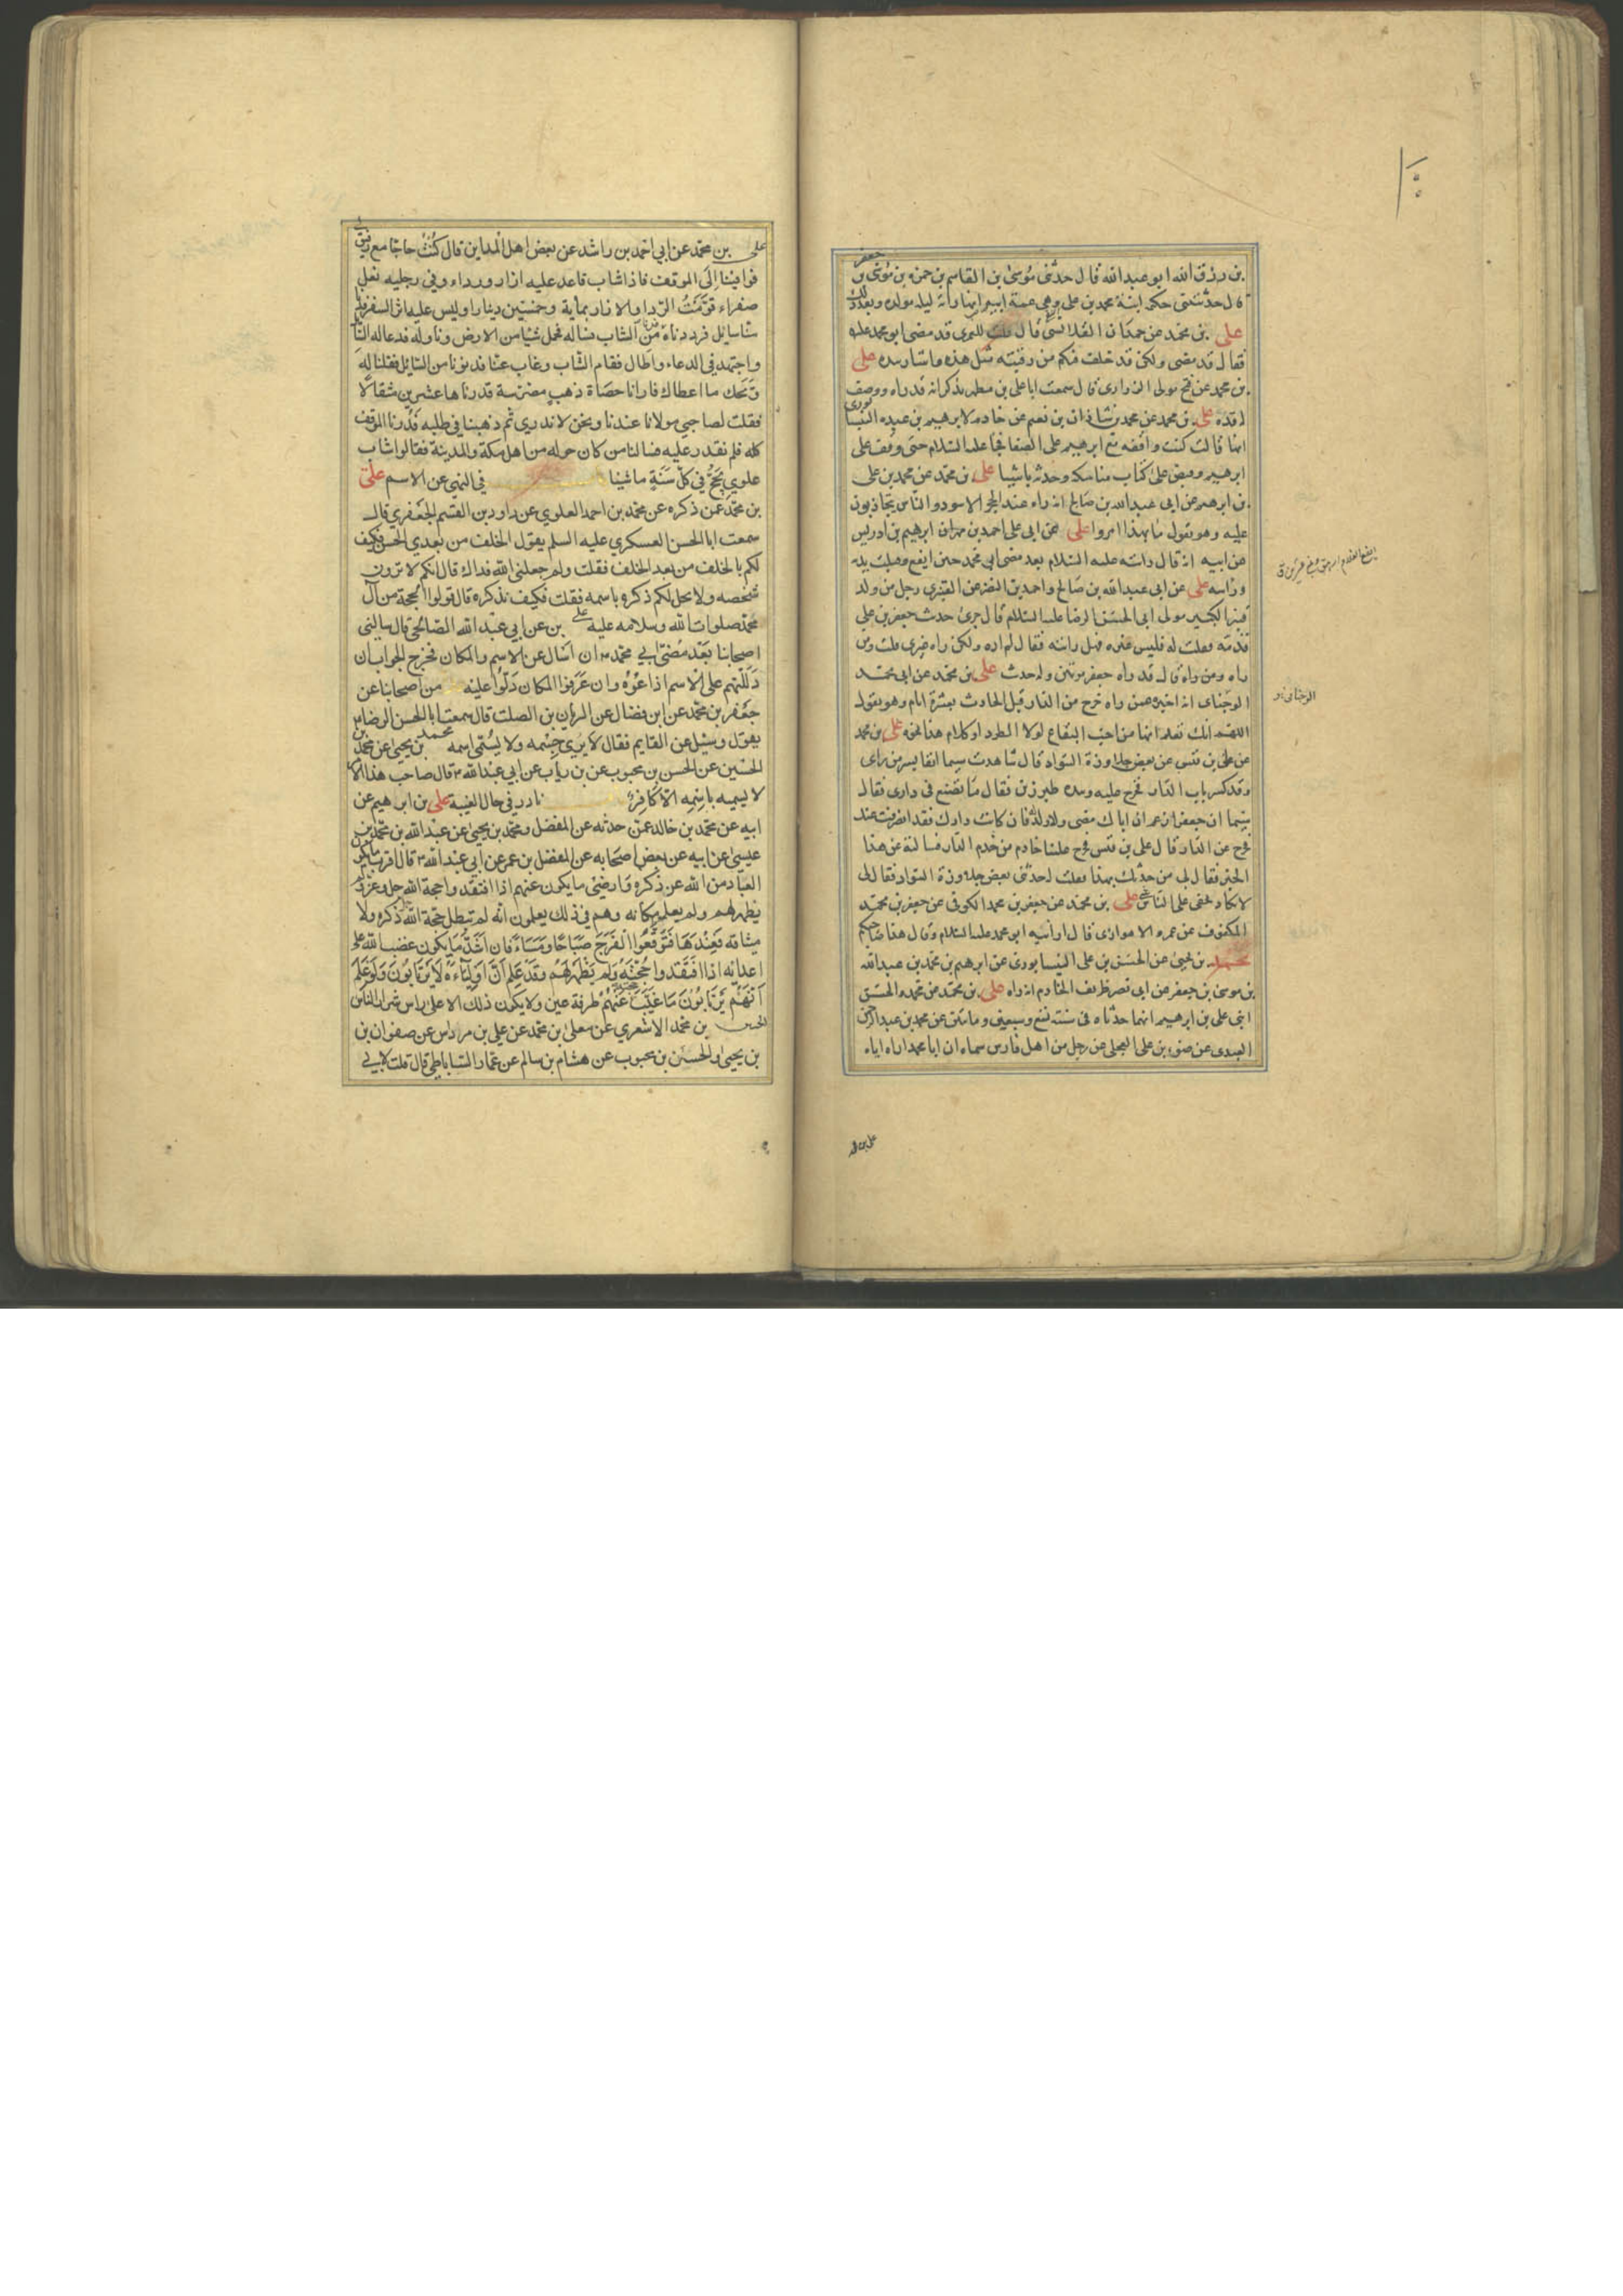 بن رزق الله ابو عبد الله قال حدثنى موسى بن القاسم بن حمزه بن موسى بن جعفر
قال حدثتنى حكمه ابنة محمد بن على وهى عمة ابيه انها راته ليله مولده وبعد ذلك
على بن محمد عن حمدان القلانسى قال قلت للعمرى قد مضى ابو محمد عليه
فقال قد مضى ولكن قد خلف فيكم من رقبته مثل هذه واشار بيده على
بن محمد عن فتح مولى الزرارى قال سمعت ابا على بن مطهر يذكر انه قد راه ووصف
له قده على بن محمد عن محمد بن شاذان بن نعيم عن خادمه لابرهيم بن عبده النيسابورى
انها قالت كنت واقفه مع ابرهيم على الصفا فجاء عليه السلام حتى وقف على
ابرهيم وقبض على كتاب مناسكه وحدثه باشيا على بن محمد عن محمد بن على
بن ابرهيم عن ابى عبد الله بن صالح انه راه عند الحجر الاسود والناس يتجاذبون
عليه وهو يقول ما بهذا امروا على عن ابى على احمد بن ابرهيم بن ادريس
عن ابيه انه قال رايته عليه السلام بعد مضى ابى محمد حين ايفع وقبلت يديه
وراسه على عن ابى عبد الله بن صالح واحمد بن النضر عن القنبرى رجل من ولد
قنبر الكبير مولى ابى الحسن الرضا عليه السلام قال جرى حديث جعفر بن على
فذمه فقلت له فليس غيره فهل رايته فقال لم اره ولكن راه غيرى قلت ومن
راه قال قد راه جعفر مرتين وله حديث على بن محمد عن ابى محمد
الوجناى انه اخبره عمن راه خرج من الدار قبل الحادث بعشرة ايام وهو يقول
اللهم انك تعلم انها من احب البقاع لولا الطرد او كلام هذا نحوه على بن محمد
عن على بن قيس عن بعض جلاوزة السواد قال شاهدت سيما انفا بسر من راى
وقد كسر باب الدار فخرج عليه وبيده طبرزين فقال ما تصنع فى دارى فقال
سيما ان جعفرا زعم ان اباك مضى ولا ولد له فان كانت دارك فقد انصرفت عنك
فخرج عن الدار قال على بن قيس فخرج علينا خادم من خدم الدار فسالته عن هذا
الخبر فقال لى من حدثك بهذا فقلت له حدثنى بعض جلاوزة السواد فقال لى
لا يكاد يخفى على الناس شى على بن محمد عن جعفر بن محمد الكوفى عن جعفر بن محمد
المكفوف عن عمرو الاهوازى قال ارانيه ابو محمد عليه السلام وقال هذا صاحبكم
محمد بن يحيى عن الحسن بن على النيسابورى عن ابرهيم بن محمد بن عبد الله
بن موسى بن جعفر عن ابى نصر ظريف الخادم انه راه على بن محمد عن محمد والحسن
ابنى على بن ابرهيم انهما حدثاه فى سنة تسع وسبعين ومائتين عن محمد بن عبد الرحمن
العبدى عن ضوء بن على العجلى عن رجل من اهل فارس سماه ان ابا محمد اراه اياه
على بن محمد
على بن محمد عن ابي احمد بن راشد عن بعض اهل المداين قال كنت حاجا مع رفيق لي
فوافينا الى الموقف فاذا شاب قاعد عليه ازار ورداء وفي رجليه نعل
صفراء قومت الرداء والازار بماية وخمسين دينارا وليس عليه اثر السفر فدنا
منا سايل فرددناه فدنا من الشاب فساله فحمل شيئا من الارض وناوله فدعا له السايل
واجتهد في الدعاء واطال فقام الشاب وغاب عنا فدنونا من السايل فقلنا له
ويحك ما اعطاك فارانا حصاة ذهب مضرسة قدرناها عشرين مثقالا
فقلت لصاحبي مولانا عندنا ونحن لا ندري ثم ذهبنا في طلبه فدرنا الموقف
كله فلم نقدر عليه فسالنا من كان حوله من اهل مكة والمدينة فقالوا شاب
علوي يحج في كل سنة ماشيا في النهي عن الاسم على
بن محمد عمن ذكره عن محمد بن احمد العلوي عن داود بن القسم الجعفري قال
سمعت ابا الحسن العسكري عليه السلم يقول الخلف من بعدي الحسن فكيف
لكم بالخلف من بعد الخلف فقلت ولم جعلني الله فداك قال انكم لا ترون
شخصه ولا يحل لكم ذكره باسمه فقلت فكيف نذكره قال قولوا الحجة من آل
محمد صلوات الله وسلامه عليه على بن عن ابي عبد الله الصالحي قال سالني
اصحابنا بعد مضي ابي محمد ان اسال عن الاسم والمكان فخرج الجواب ان
دللتهم على الاسم اذاعوه وان عرفوا المكان دلوا عليه من اصحابنا عن
جعفر بن محمد عن ابن فضال عن الريان بن الصلت قال سمعت ابا الحسن الرضا
يقول وسئل عن القايم فقال لا يرى جسمه ولا يسمى اسمه محمد بن يحيى عن محمد بن
الحسين عن الحسن بن محبوب عن بن رياب عن ابي عبد الله قال صاحب هذا الامر
لا يسميه باسمه الا كافر نادر في حال الغيبة على بن ابرهيم عن
ابيه عن محمد بن خالد عمن حدثه عن المفضل ومحمد بن يحيى عن عبد الله بن محمد بن
عيسى عن ابيه عن بعض اصحابه عن المفضل بن عمر عن ابي عبد الله قال اقرب ما يكون
العباد من الله عن ذكره وارضى ما يكون عنهم اذا افتقدوا حجة الله جل وعز ولم
يظهر لهم ولم يعلموا مكانه وهم في ذلك يعلمون انه لم تبطل حجة الله ذكره ولا
ميثاقه فعندها فتوقعوا الفرج صباحا ومساء فان اشد ما يكون غضب الله على
اعدائه اذا افتقدوا حجته ولم يظهر لهم وقد علم ان اولياءه لا يرتابون ولو علم
انهم يرتابون ما غيب عنهم طرفة عين ولا يكون ذلك الا على راس شرار الناس
الحسين بن محمد الاشعري عن معلى بن محمد عن علي بن مرداس عن صفوان بن
بن يحيى والحسن بن محبوب عن هشام بن سالم عن عمار الساباطي قال قلت لابي